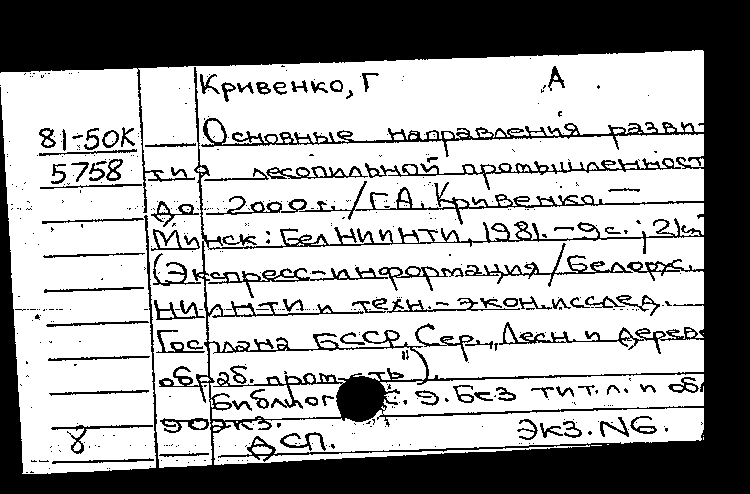 Кривенко, Г А.
81-50К Основные направления разви-
5758 тия лесопильной промышленност
до 2000 г. / Г.А. Кривенко. —
Минск: БелНИИНТИ, 1981. – 9 с.;
(Экспресс-информация / Белорус.
НИИНТИ и техн.-экон. исслед.
Госплана БССР. Сер. „Лесн. и дерево
обраб. пром-сть").
Библиог с. 9. Без тит. л. и обл
90 экз.
8 ДСП. Экз. N6.